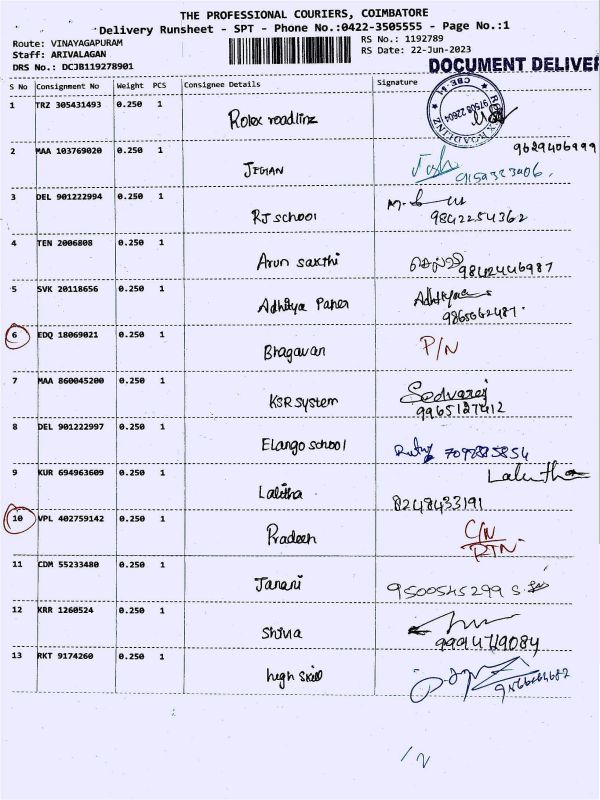 THE PROFESSIONAL COURIERS, COIMBATORE
Delivery Runsheet - SPT - Phone No.:0422-3505555 - Page No.:1
Route: VINAYAGAPURAM
RS No.: 1192789
Staff: ARIVALAGAN
RS Date: 22-Jun-2023
DRS No.: DCJB119278901
DOCUMENT DELIVER
S No Consignment No Weight PCS Consignee Details Signature
1 TRZ 305431493 0.250 1 Rolex roadlinz
9629406999
2 MAA 103769020 0.250 1 JEGAN 9159323406.
3 DEL 901222994 0.250 1 RJ school 9842254362
4 TEN 2006808 0.250 1 Arun sakthi 9842446987
5 SVK 20118656 0.250 1 Adhitya Paper Adhitya
9865062487.
6 EDQ 18069021 0.250 1 Bhagavan P/N
7 MAA 860045200 0.250 1 KSR system Selvaraj
9965127412
8 DEL 901222997 0.250 1 Elango school 7097885854
9 KUR 694963609 0.250 1 Lalitha Lalitha
8248433191
10 VPL 402759142 0.250 1 Pradeep C/N
RTN
11 CDM 55233480 0.250 1 Janani 9500545299
12 KRR 1260524 0.250 1 Shiva
9994719084
13 RKT 9174260 0.250 1 high skill